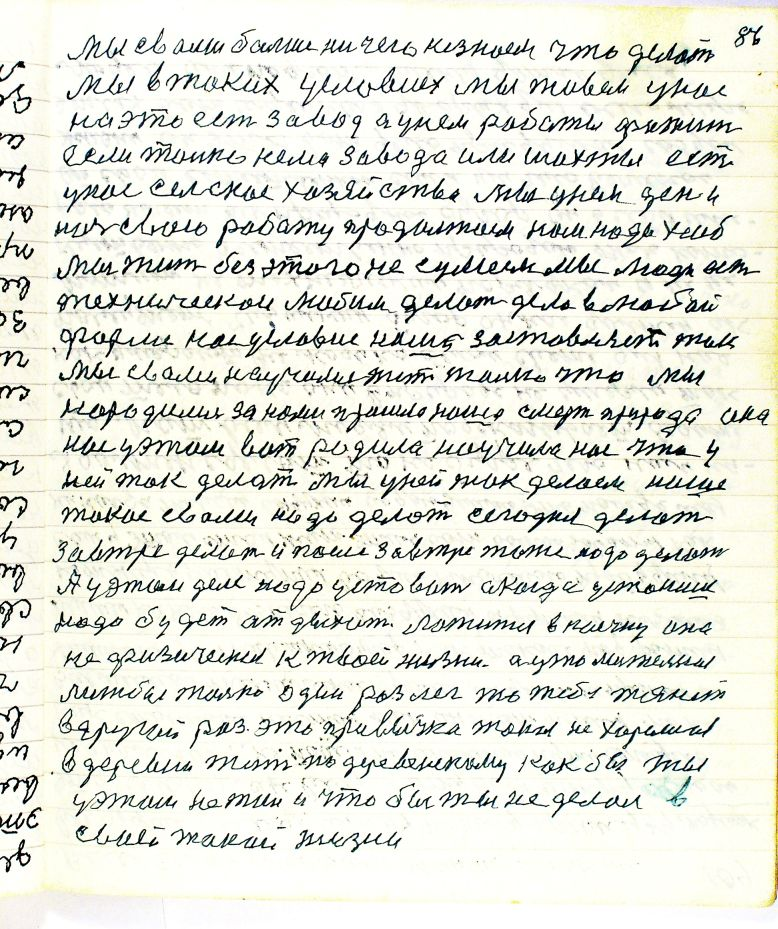 86
мы свами болше ничего незноем что делот
мы втоких условиех мы живем унос
наэто ест завод аунем работы фтжит
если толко нема завода или шохты ест
унос селское хозяйства мы унем ден и
ноч свою работу продолжоем ном нодо хлеб
мы жит без этого не сумеем мы люди ест
техническои любим делот дело влюбой
форме нос условие ноше зостовляет так
мы свами научилис жит толко что мы
народилис за номи пришло ноша смерт природа она
нос уэтом вот родила научила нос что у
ней ток делот мы уней ток делоем ноше
токое свами нодо делот сегодня делот
завтре делот и после завтре тоже нодо делот
А уэтом деле нодо устоват акогда устонеш
нодо будет отдыхот ложится вкоечку она
не физическоя к твоей жизни аутомительноя
лижбы толко один роз лег то тебе тянет
вдругой роз это привычка токоя не хорошоя
вдеревни жит по деревенскому как бы ты
уэтом не жил и что бы ты не делол в
своей токой жизни